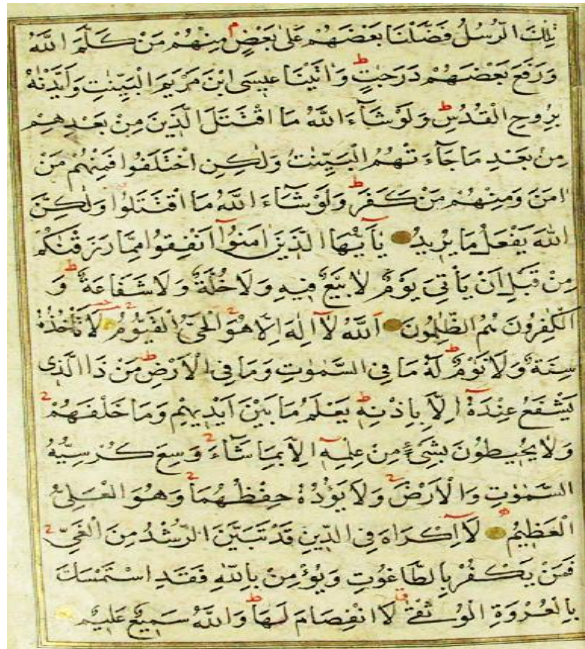 تِلْكَ الرُّسُلُ فَضَّلْنَا بَعْضَهُمْ عَلٰى بَعْضٍ ۘ مِنْهُمْ مَنْ كَلَّمَ اللّٰهُ
وَرَفَعَ بَعْضَهُمْ دَرَجٰتٍ ۗ وَاٰتَيْنَا عِيسَى ابْنَ مَرْيَمَ الْبَيِّنٰتِ وَاَيَّدْنٰهُ
بِرُوحِ الْقُدُسِ ۗ وَلَوْ شَاۤءَ اللّٰهُ مَا اقْتَتَلَ الَّذِينَ مِنْ بَعْدِهِمْ
مِنْ بَعْدِ مَا جَاۤءَتْهُمُ الْبَيِّنٰتُ وَلٰكِنِ اخْتَلَفُوا فَمِنْهُمْ مَنْ
اٰمَنَ وَمِنْهُمْ مَنْ كَفَرَ ۗ وَلَوْ شَاۤءَ اللّٰهُ مَا اقْتَتَلُوا وَلٰكِنَّ
اللّٰهَ يَفْعَلُ مَا يُرِيدُ يَاۤ اَيُّهَا الَّذِينَ اٰمَنُوۤا اَنْفِقُوا مِمَّا رَزَقْنٰكُمْ
مِنْ قَبْلِ اَنْ يَأْتِيَ يَوْمٌ لَا بَيْعٌ فِيهِ وَلَا خُلَّةٌ وَلَا شَفَاعَةٌ ۗ وَ
الْكٰفِرُونَ هُمُ الظّٰلِمُونَ اَللّٰهُ لَاۤ اِلٰهَ اِلَّا هُوَ ۚ الْحَيُّ الْقَيُّومُ ۚ لَا تَأْخُذُهُ
سِنَةٌ وَلَا نَوْمٌ ۗ لَهُ مَا فِي السَّمٰوٰتِ وَمَا فِي الْاَرْضِ ۗ مَنْ ذَا الَّذِي
يَشْفَعُ عِنْدَهُ اِلَّا بِاِذْنِهِ ۗ يَعْلَمُ مَا بَيْنَ اَيْدِيهِمْ وَمَا خَلْفَهُمْ ۚ
وَلَا يُحِيطُونَ بِشَيْءٍ مِنْ عِلْمِهِ اِلَّا بِمَا شَاۤءَ ۚ وَسِعَ كُرْسِيُّهُ
السَّمٰوٰتِ وَالْاَرْضَ ۚ وَلَا يَؤُدُهُ حِفْظُهُمَا ۚ وَهُوَ الْعَلِيُّ
الْعَظِيمُ لَاۤ اِكْرَاهَ فِي الدِّينِ قَدْ تَبَيَّنَ الرُّشْدُ مِنَ الْغَيِّ ۚ
فَمَنْ يَكْفُرْ بِالطَّاغُوتِ وَيُؤْمِنْ بِاللّٰهِ فَقَدِ اسْتَمْسَكَ
بِالْعُرْوَةِ الْوُثْقٰى لَا انْفِصَامَ لَهَا ۗ وَاللّٰهُ سَمِيعٌ عَلِيمٌ